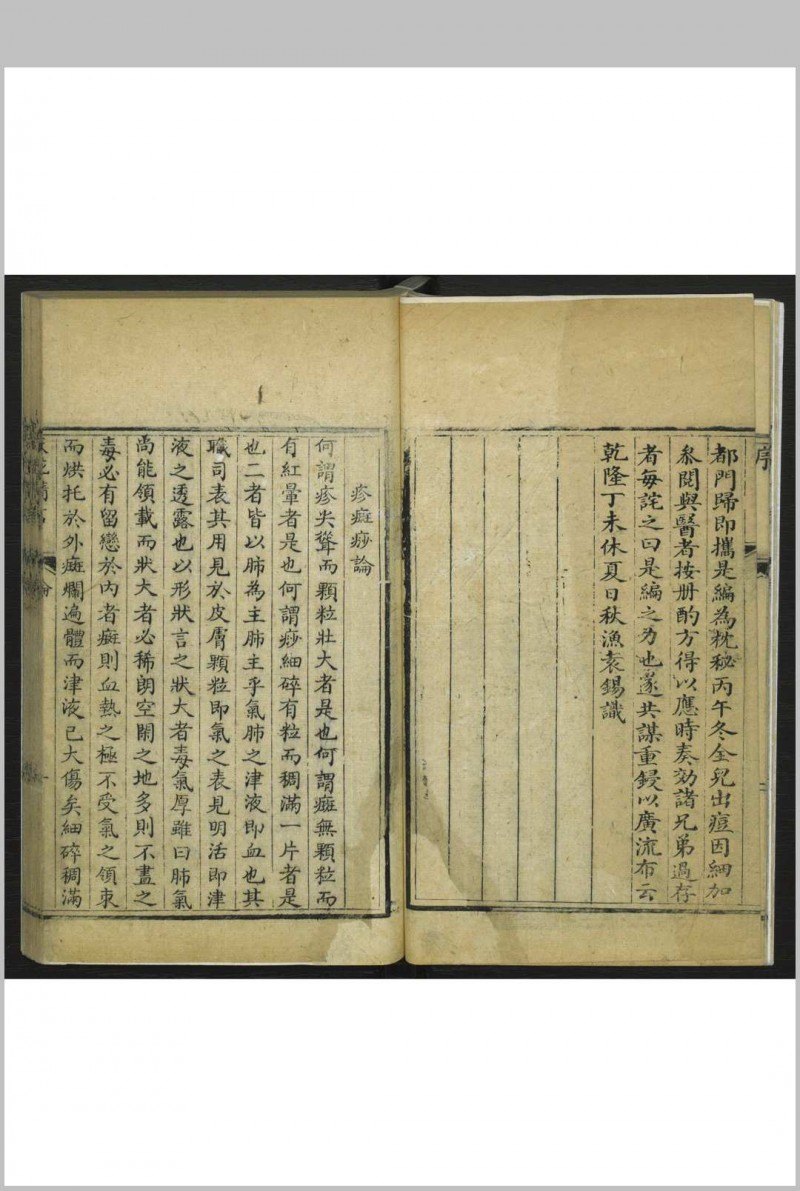 序
都門歸即攜是編為枕秘丙午冬全兒出痘因細加
叅閱與醫者按册酌方得以應時奏効諸兄弟過存
者每詫之曰是編之力也遂共謀重鋟以廣流布云
乾隆丁未休夏日秋漁袁錫識
疹癍痧論
何謂疹尖聳而顆粒壯大者是也何謂癍無顆粒而
有紅暈者是也何謂痧細碎有粒而稠滿一片者是
也二者皆以肺為主肺主乎氣肺之津液即血也其
職司表其用見於皮膚顆粒即氣之表見明活即津
液之透露也以形狀言之狀大者毒氣厚雖曰肺氣
尚能領載而狀大者必稀朗空闊之地多則不盡之
毒必有留戀於內者癍則血熱之極不受氣之領朿
而烘托於外癍爛遍體而津液已大傷矣細碎稠滿